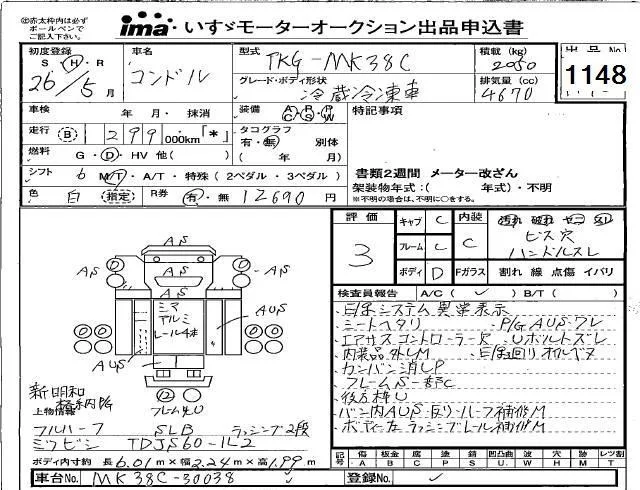 ㊟赤太枠内は必ず
ボールペンで
ご記入下さい。
ima いすゞモーターオークション出品申込書
初度登録 車名 型式 積載(kg) 出品No
S・H・R コンドル TKG-MK38C 2050 1148
26/5月 グレード・ボディ形状 排気量(cc)
冷蔵冷凍車 4670
車検 年 月・抹消 装備 A/C P/S P/W 特記事項
走行 B 1299 000km「*」 タコグラフ
有・無 別体
燃料 G・D・HV 他( ) ( 年 月)
シフト 6 M/T・A/T・特殊(2ペダル・3ペダル) 書類2週間 メーター改ざん
架装物年式:( 年式)・不明
色 白 (指定) R券 有・無 12690円 ※不明の場合は、不明に○をする。
評価 キャブ C 内装 汚れ 破れ セニコゲ スレ
3 フレーム C C ビス穴
ハンドルスレ
ボディ D Fガラス 割れ 線 点傷 イバリ
検査員報告 A/C( ) B/T( )
AS
AS AS
AS
シマ
アルミ
レール4本
AUS
AUS
フレーム4U
新明和
格納PG
上物情報
フルハーフ SLB ラッシング2段
ミツビシ TDJS60-1L2
シートヘタリ P/G AUS・ワレ
エアサスコントローラー欠 Uボルトズレ
内装品外しM
フレームS一部C
後方枠U
ボディ左ラッシングレール補修M
ボディ内寸約 長6.01m×幅2.24m×高1.99m
記号 傷 板金 腐 塗 錆 凹凸曲 波 穴 跡 ツヤ無
A B C P S U W H M T
車台No. MK38C-30038